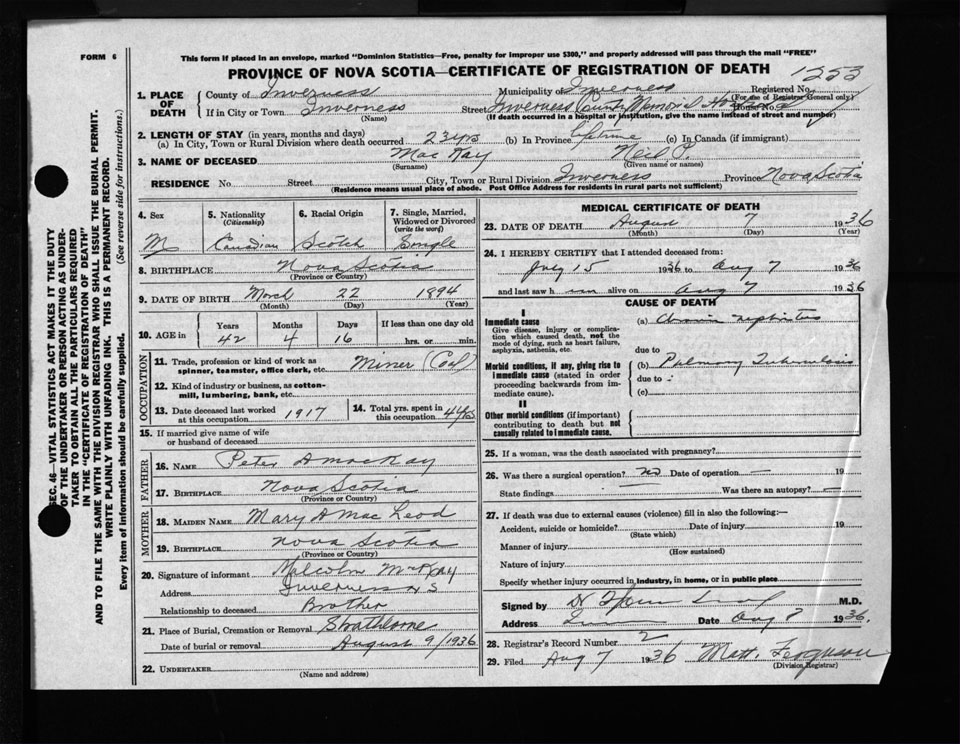 FORM 6
This form if placed in an envelope, marked "Dominion Statistics—Free, penalty for improper use $300," and properly addressed will pass through the mail "FREE"
PROVINCE OF NOVA SCOTIA—CERTIFICATE OF REGISTRATION OF DEATH
1253
1. PLACE OF DEATH
County of Inverness Municipality of Inverness Registered No.
(For use of Registrar General only)
If in City or Town Inverness Street Inverness County Memorial House No.
(Name) (If death occurred in a hospital or institution, give the name instead of street and number)
2. LENGTH OF STAY (in years, months and days)
(a) In City, Town or Rural Division where death occurred 23 yrs (b) In Province Lifetime (c) In Canada (if immigrant)
3. NAME OF DECEASED MacKay Neil P.
(Surname) (Given name or names)
RESIDENCE No. Street City, Town or Rural Division Inverness Province Nova Scotia
(Residence means usual place of abode. Post Office Address for residents in rural parts not sufficient)
4. Sex
M
5. Nationality
(Citizenship)
Canadian
6. Racial Origin
Scotch
7. Single, Married, Widowed or Divorced
(write the word)
Single
8. BIRTHPLACE Nova Scotia
(Province or Country)
9. DATE OF BIRTH March 22 1894
(Month) (Day) (Year)
10. AGE in
Years Months Days If less than one day old
42 4 16 hrs. or min.
OCCUPATION
11. Trade, profession or kind of work as spinner, teamster, office clerk, etc. Miner (Col)
12. Kind of industry or business, as cotton-mill, lumbering, bank, etc.
13. Date deceased last worked at this occupation 1917
14. Total yrs. spent in this occupation 4 yrs
15. If married give name of wife or husband of deceased
FATHER
16. NAME Peter A MacKay
17. BIRTHPLACE Nova Scotia
(Province or Country)
MOTHER
18. MAIDEN NAME Mary A MacLeod
19. BIRTHPLACE Nova Scotia
(Province or Country)
20. Signature of informant Malcolm McKay
Address Inverness N S
Relationship to deceased Brother
21. Place of Burial, Cremation or Removal Strathlorne
Date of burial or removal August 9/1936
22. UNDERTAKER
(Name and address)
MEDICAL CERTIFICATE OF DEATH
23. DATE OF DEATH August 7 1936
(Month) (Day) (Year)
24. I HEREBY CERTIFY that I attended deceased from:
July 15 1936 to Aug 7 1936
and last saw h im alive on Aug 7 1936
CAUSE OF DEATH
I
Immediate cause
Give disease, injury or complication which caused death, not the mode of dying, such as heart failure, asphyxia, asthenia, etc.
(a) Chronic nephritis
due to
Morbid conditions, if any, giving rise to immediate cause (stated in order proceeding backwards from immediate cause).
(b) Pulmonary Tuberculosis
due to
(c)
II
Other morbid conditions (if important) contributing to death but not causally related to immediate cause.
25. If a woman, was the death associated with pregnancy?
26. Was there a surgical operation? no Date of operation — 19
State findings Was there an autopsy? —
27. If death was due to external causes (violence) fill in also the following:—
Accident, suicide or homicide? Date of injury 19
(State which)
Manner of injury
(How sustained)
Nature of injury
Specify whether injury occurred in industry, in home, or in public place
Signed by M.D.
Address Date Aug 7 1936.
28. Registrar's Record Number 2
29. Filed Aug 7 1936 Matt. Ferguson
(Division Registrar)
SEC. 46—VITAL STATISTICS ACT MAKES IT THE DUTY
OF THE UNDERTAKER OR PERSON ACTING AS UNDER-
TAKER TO OBTAIN ALL THE PARTICULARS REQUIRED
IN THE "CERTIFICATE OF REGISTRATION OF DEATH"
AND TO FILE THE SAME WITH THE DIVISION REGISTRAR WHO SHALL ISSUE THE BURIAL PERMIT.
WRITE PLAINLY WITH UNFADING INK. THIS IS A PERMANENT RECORD.
Every item of information should be carefully supplied. (See reverse side for instructions.)